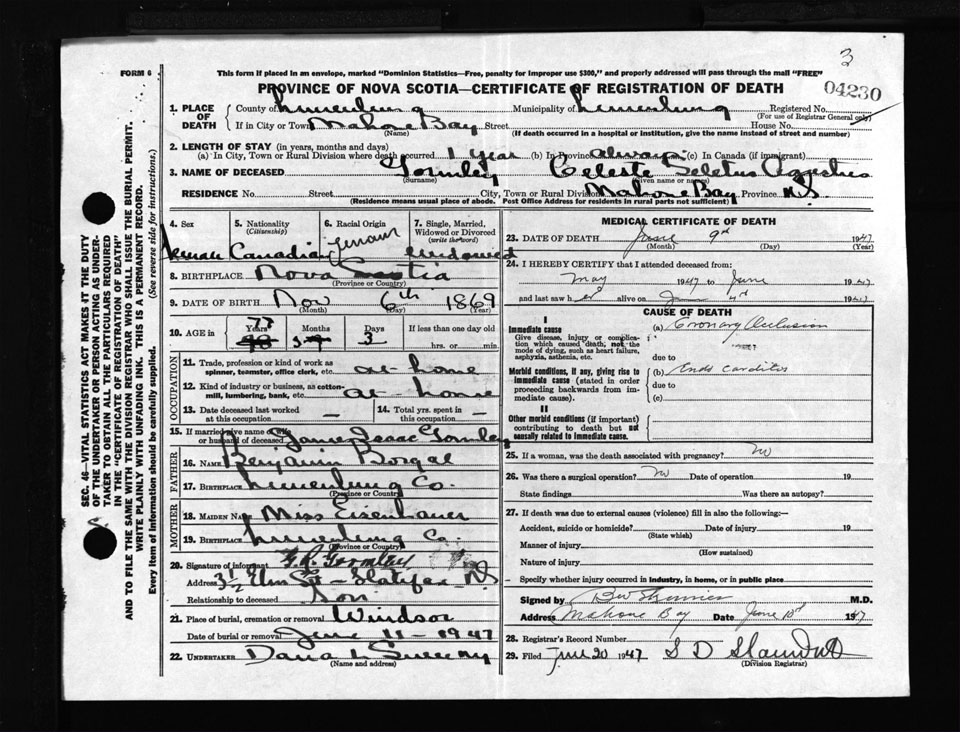 3
FORM 6
This form if placed in an envelope, marked "Dominion Statistics—Free, penalty for improper use $300," and properly addressed will pass through the mail "FREE"
PROVINCE OF NOVA SCOTIA—CERTIFICATE OF REGISTRATION OF DEATH
04230
1. PLACE OF DEATH County of Lunenburg Municipality of Lunenburg Registered No.
(For use of Registrar General only)
If in City or Town Mahone Bay Street House No.
(Name) (If death occurred in a hospital or institution, give the name instead of street and number)
2. LENGTH OF STAY (in years, months and days)
(a) In City, Town or Rural Division where death occurred 1 year (b) In Province always (c) In Canada (if immigrant)
3. NAME OF DECEASED Gormley Celeste
(Surname) (Given name or names)
RESIDENCE No. Street City, Town or Rural Division Mahone Bay Province N.S.
(Residence means usual place of abode. Post Office Address for residents in rural parts not sufficient)
4. Sex 5. Nationality (Citizenship) 6. Racial Origin 7. Single, Married, Widowed or Divorced (write the word)
Female Canadian German Widowed
8. BIRTHPLACE Nova Scotia
(Province or Country)
9. DATE OF BIRTH Nov 6th 1869
(Month) (Day) (Year)
10. AGE in 77 Years Months Days 3 If less than one day old
hrs. or min.
OCCUPATION
11. Trade, profession or kind of work as spinner, teamster, office clerk, etc. at home
12. Kind of industry or business, as cotton-mill, lumbering, bank, etc. at home
13. Date deceased last worked at this occupation – 14. Total yrs. spent in this occupation –
15. If married give name of wife or husband of deceased James Isaac Gormley
FATHER
16. NAME Benjamin
17. BIRTHPLACE Lunenburg Co.
(Province or Country)
MOTHER
18. MAIDEN NAME Miss Eisenhauer
19. BIRTHPLACE Lunenburg Co.
(Province or Country)
20. Signature of informant Gormley
Address 3½ Elm St – Halifax N.S.
Relationship to deceased Son
21. Place of burial, cremation or removal Windsor
Date of burial or removal June 11 – 1947
22. UNDERTAKER Dana L Sweeny
(Name and address)
MEDICAL CERTIFICATE OF DEATH
23. DATE OF DEATH June 9th 1947
(Month) (Day) (Year)
24. I HEREBY CERTIFY that I attended deceased from:
May 1947 to June 1947
and last saw her alive on June 1947
CAUSE OF DEATH
I
Immediate cause (a) Coronary Occlusion
Give disease, injury or complication which caused death, not the mode of dying, such as heart failure, asphyxia, asthenia, etc.
due to
Morbid conditions, if any, giving rise to immediate cause (stated in order proceeding backwards from immediate cause). (b) Endo carditis
due to
(c)
II
Other morbid conditions (if important) contributing to death but not causally related to immediate cause.
25. If a woman, was the death associated with pregnancy? No
26. Was there a surgical operation? No Date of operation 19
State findings Was there an autopsy?
27. If death was due to external causes (violence) fill in also the following:—
Accident, suicide or homicide? Date of injury 19
(State which)
Manner of injury
(How sustained)
Nature of injury
Specify whether injury occurred in industry, in home, or in public place
Signed by M.D.
Address Mahone Bay Date June 1947
28. Registrar's Record Number
29. Filed June 20 1947 S D
(Division Registrar)
SEC. 46—VITAL STATISTICS ACT MAKES IT THE DUTY
OF THE UNDERTAKER OR PERSON ACTING AS UNDER-
TAKER TO OBTAIN ALL THE PARTICULARS REQUIRED
IN THE "CERTIFICATE OF REGISTRATION OF DEATH"
AND TO FILE THE SAME WITH THE DIVISION REGISTRAR WHO SHALL ISSUE THE BURIAL PERMIT.
WRITE PLAINLY WITH UNFADING INK. THIS IS A PERMANENT RECORD.
Every item of information should be carefully supplied. (See reverse side for instructions.)